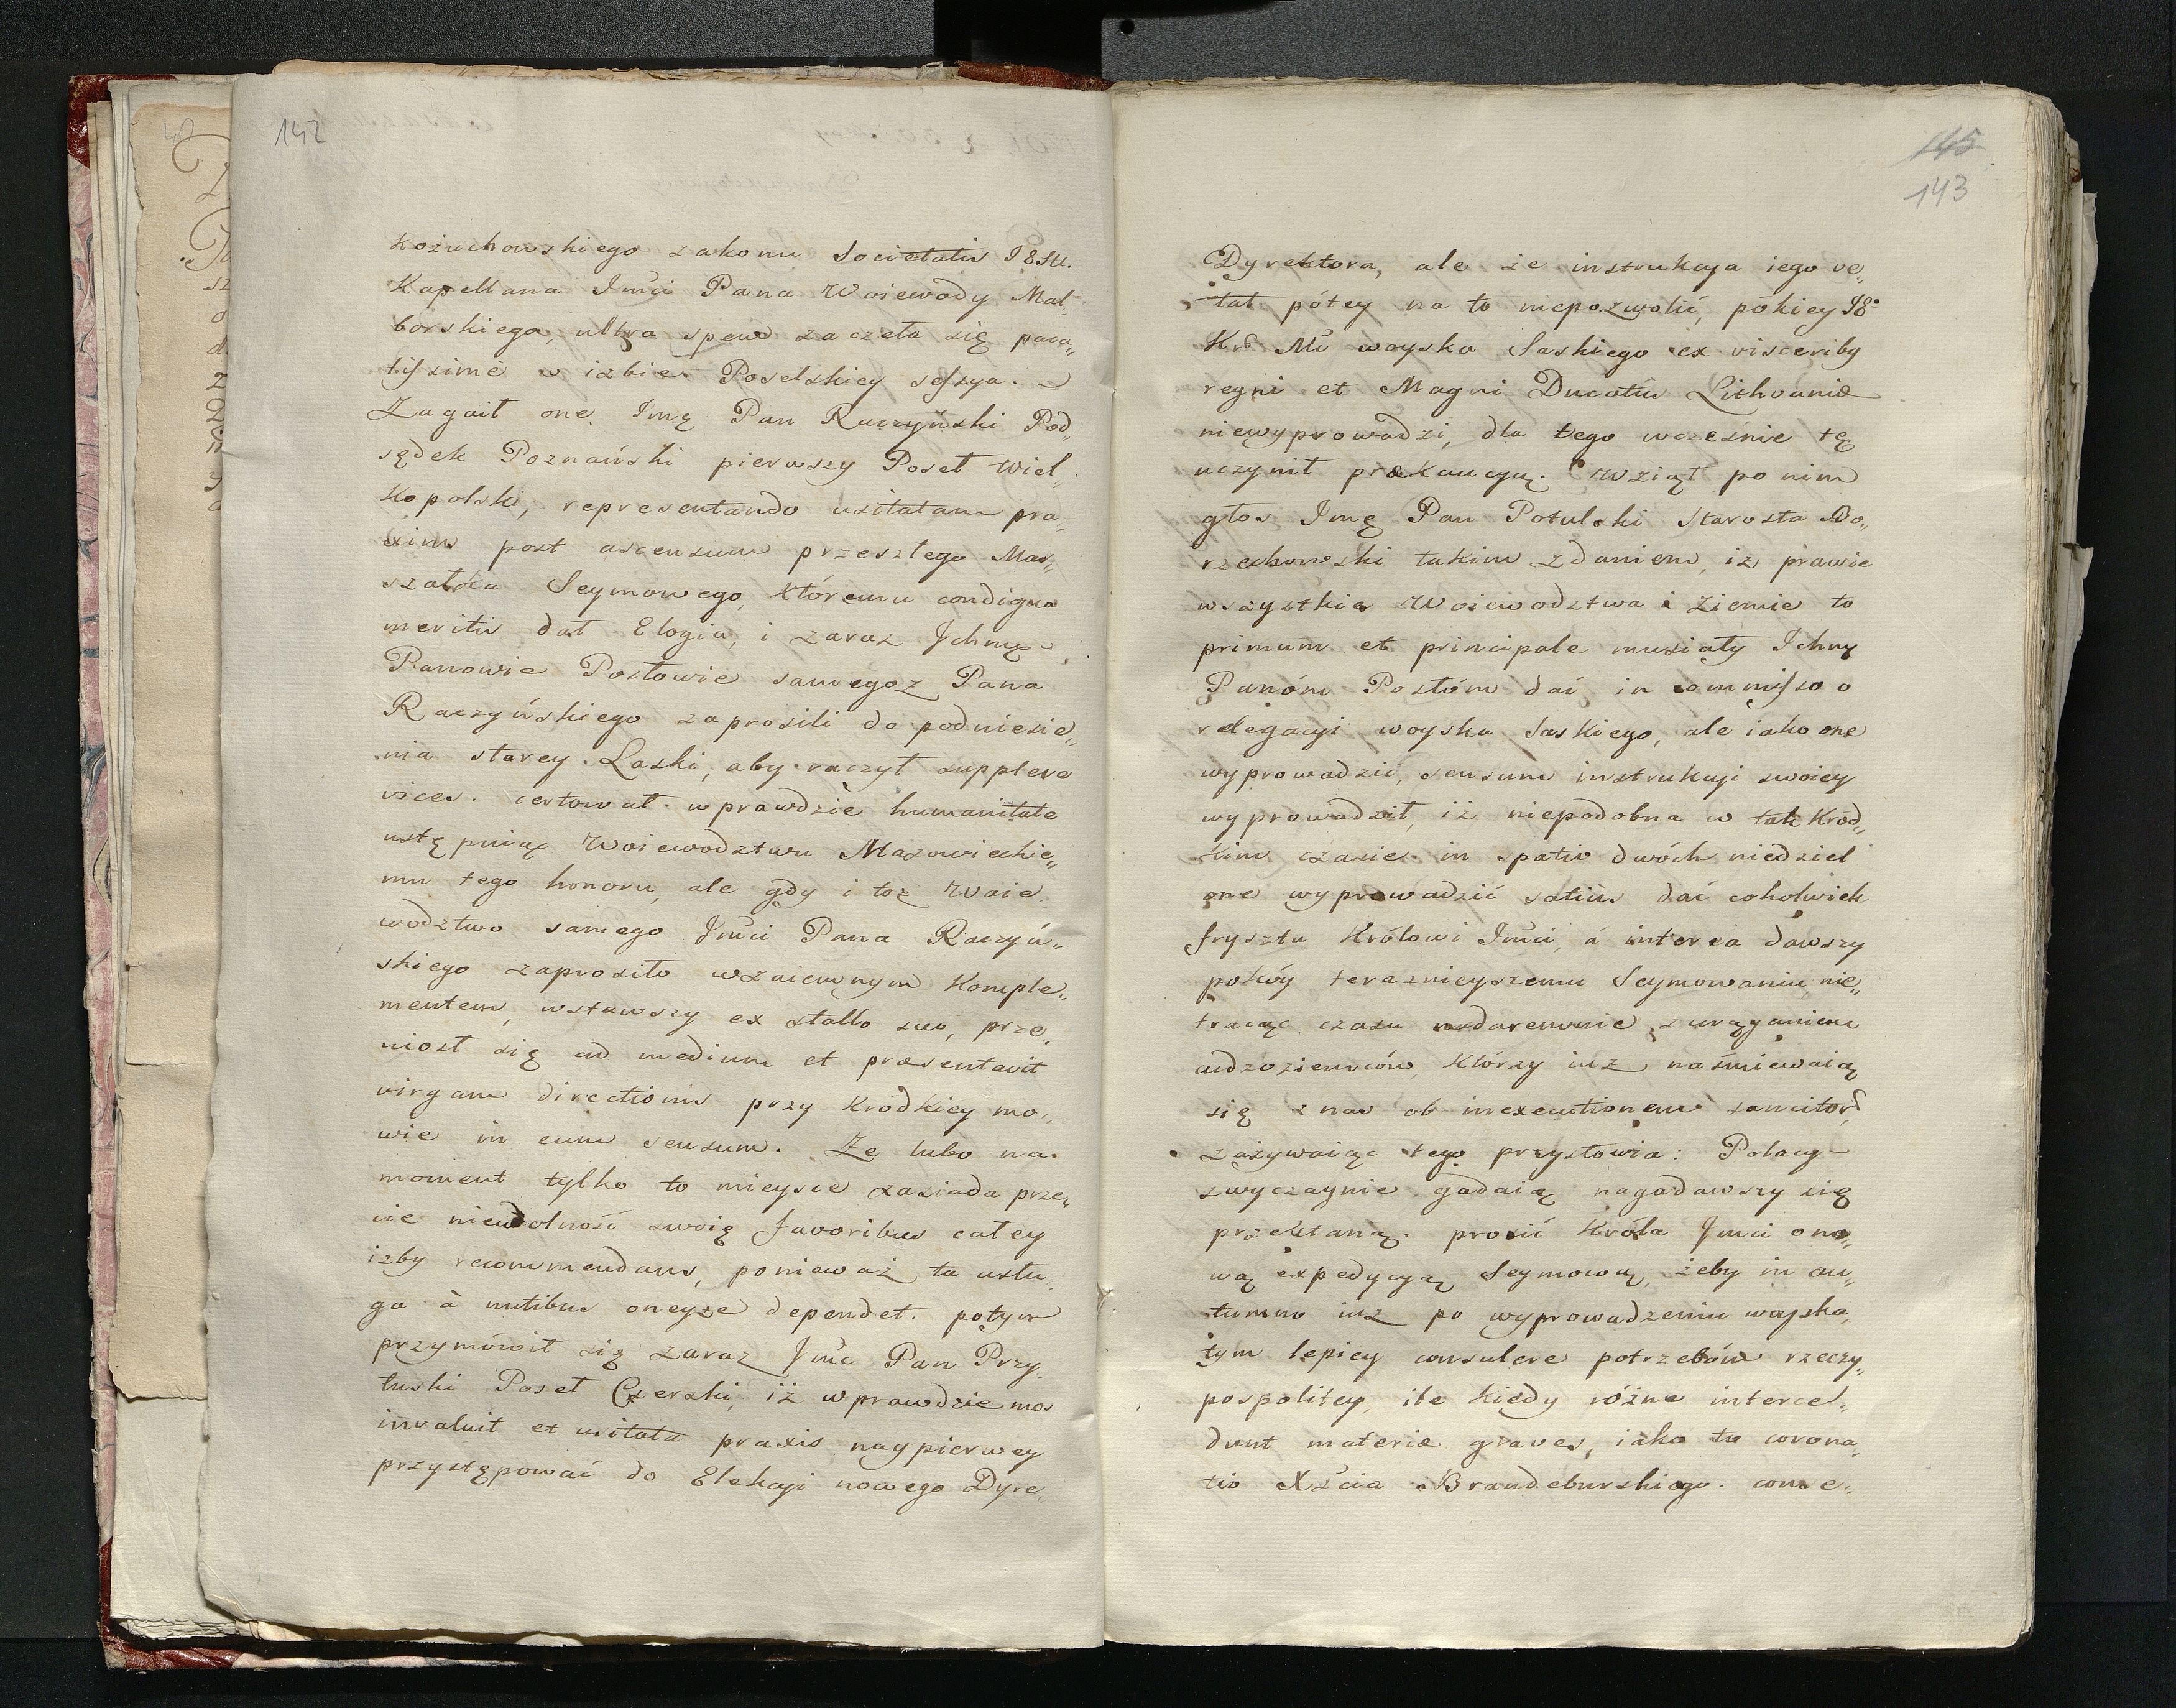 142
Kożuchowskiego zakonu Societatis JESU.
Kapellana Jmci Pana Woiewody Mal„
borskiego, ultra spem zaczeła się para„
tissime w izbie Poselskiey sessya.
Zagaił onę Jmę Pan Raczyński Pod„
sędek Poznański pierwszy Poseł Wiel„
kopolski, representando usitatam pra„
xim post ascensum przeszłego Mar„
szałka Seymowego, któremu condigna
meritis dał Elogia, i zaraz Jchmę
Panowie Posłowie samegoz Pana
Raczyńskiego zaprosili do podniesie„
nia starey Laski, aby raczył supplere
vices. certował wprawdzie humanitate
ustępuiąc Woiewodztwu Mazowieckie„
mu tego honoru, ale gdy i toż Woie„
wodztwo samego Jmci Pana Raczyń„
skiego zaprosiło wzaiemnym Komple„
mentem, wstawszy ex stallo suo, prze„
niosł się ad medium et præsentavit
virgam directionis przy krodkiey mo„
wie in eum sensum. Ze lubo na
moment tylko to mieysce zasiada prze„
cie nieudolność swoię favoribus całey
izby recommendans, ponieważ ta usłu„
ga à nutibus oneyże dependet. potym
przymówił się zaraz Jmc Pan Przy„
łuski Poseł Czerski, iż wprawdzie mos
invaluit et usitata praxis naypierwey
przystępować do Elekcyi nowego Dyre„
145
143
Dyrektora, ale że instrukcya iego ve„
tat pótey na to niepozwolić, pókiey J8
Kr Mć woyska Saskiego ex visceriby
regni et Magni Ducatûs Lithvaniæ
niewyprowadzi, dla tego wcześnie tę
uczynił prækaucyą. Wziął po nim
głos Jmę Pan Potulski Starosta Bo„
rzechowski takim zdaniem, iż prawie
wszystkie Woiewodztwa i Ziemie to
primum et principale musiały Ichmę
Panóm Posłóm dać in commisso o
relegacyi woyska Saskiego, ale iako one
wyprowadzić, sensum instrukcyi swoiey
wyprowadził, iż niepodobna w tak kród„
kim czasie in spatio dwóch niedziel
one wyprowadzić satiùs dać cokolwiek
frysztu Królowi Jmci, á interea dawszy
pokóy teraznieyszemu Seymowaniu, nie„
tracąc czasu nadaremnie, z urąganiem
cudzoziemców, którzy iuż naśmiewaią
się z nas ob inexecutionem sancitor
zażywaiąc tego przysłowia: Polacy
zwyczaynie gadaią nagadawszy się
przestaną. prosić Króla Jmci o no„
wą expedycyą Seymową, żeby in au„
tumno iuż po wyprowadzeniu woyska,
tym lepiey consulere potrzebóm rzeczy„
pospolitey, ile kiedy różne interce„
dunt materiæ graves, iako to corona„
tio Xżcia Brandeburskiego. conse„